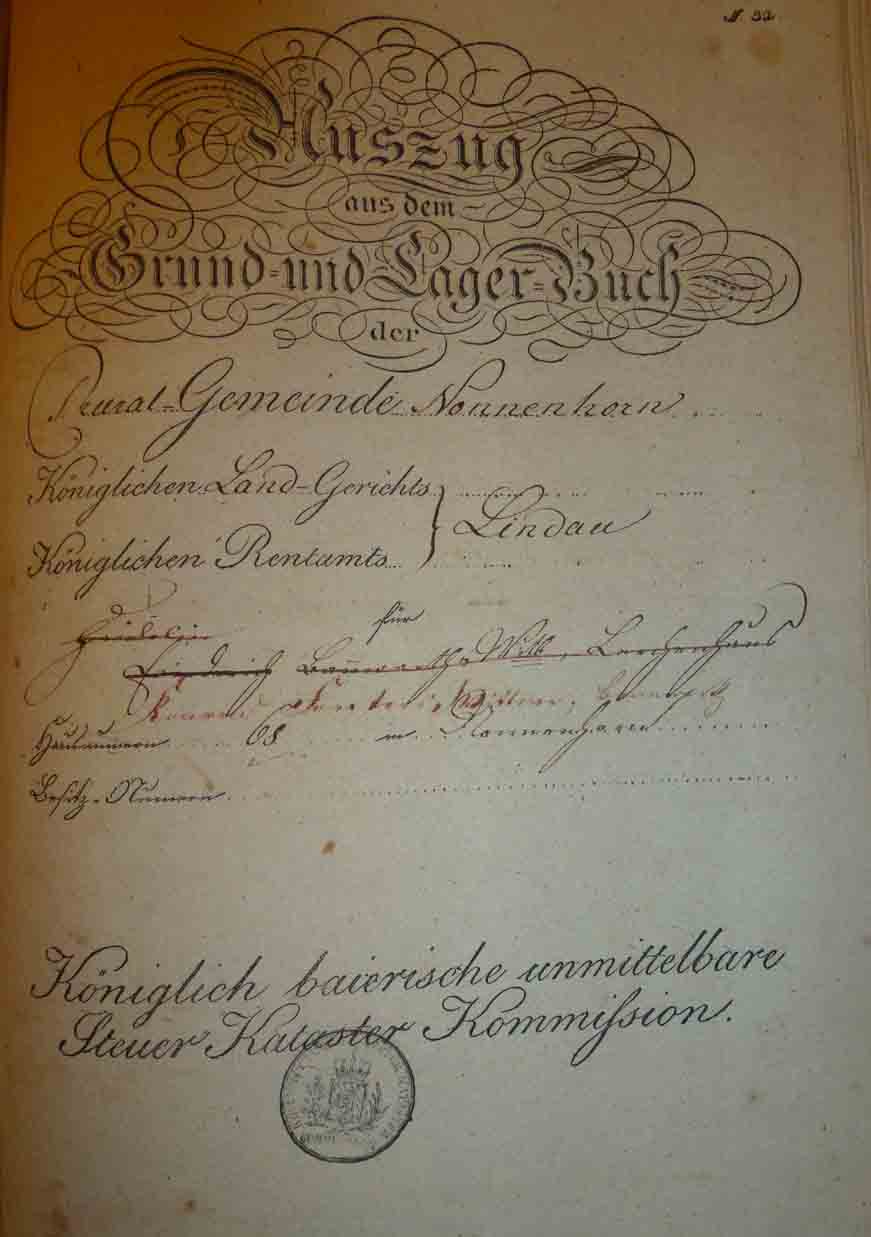 N. 32.
Auszug
aus dem
Grund- und Lager-Buch
der
Rural-Gemeinde Nonnenhorn
Königlichen Land-Gerichts
Lindau
Königlichen Rentamts
für
Friederich
Hausnummern 68 in Nonnenhorn
Besitz-Numern
Königlich baierische unmittelbare
Steuer Kataster Kommißion.